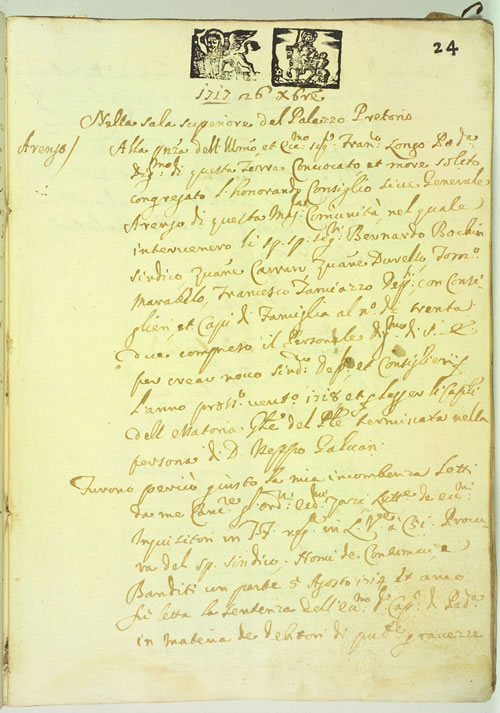 24
1717 26 Xbre
Nella sala superiore del Palazzo Pretorio
Arengo/
Alla pnza dell Illmo et Ecc.mo sig.r Fran.co Longo Pod.a
di questa Terra Convocato, et more solito
congregato l'honorando Consiglio sive Generale
Arengo di questa Mag.ca Comunità nel quale
intervenero li sp. sp. Bernardo Bochin
sindico Zuane Carraro, Zuane Durello,
Marabelo, Francesco Tamiazzo con Consi
glieri, et Capi di Famiglia al n.o di trenta
due compreso il Personale di S. E.
per crear novo sind.o et Consiglieri
l'anno vent.o 1718 et elegger li Capli
dell essatoria del terminata nella
persona di D. Neppo Galuan.
Furono perciò giusto la mia incombenza Letti
da me Canc.re Lett.e de ecc.mi
Inquisitori in T.F.
va del sp. sindico. Nomi de Contumaci, e
Banditi un parte 5 Agosto 1714 et anco
fu letta la sentenza dell'ecc.mo Cap.o di Pad.a
in materia de debitori di pub.e gravezze